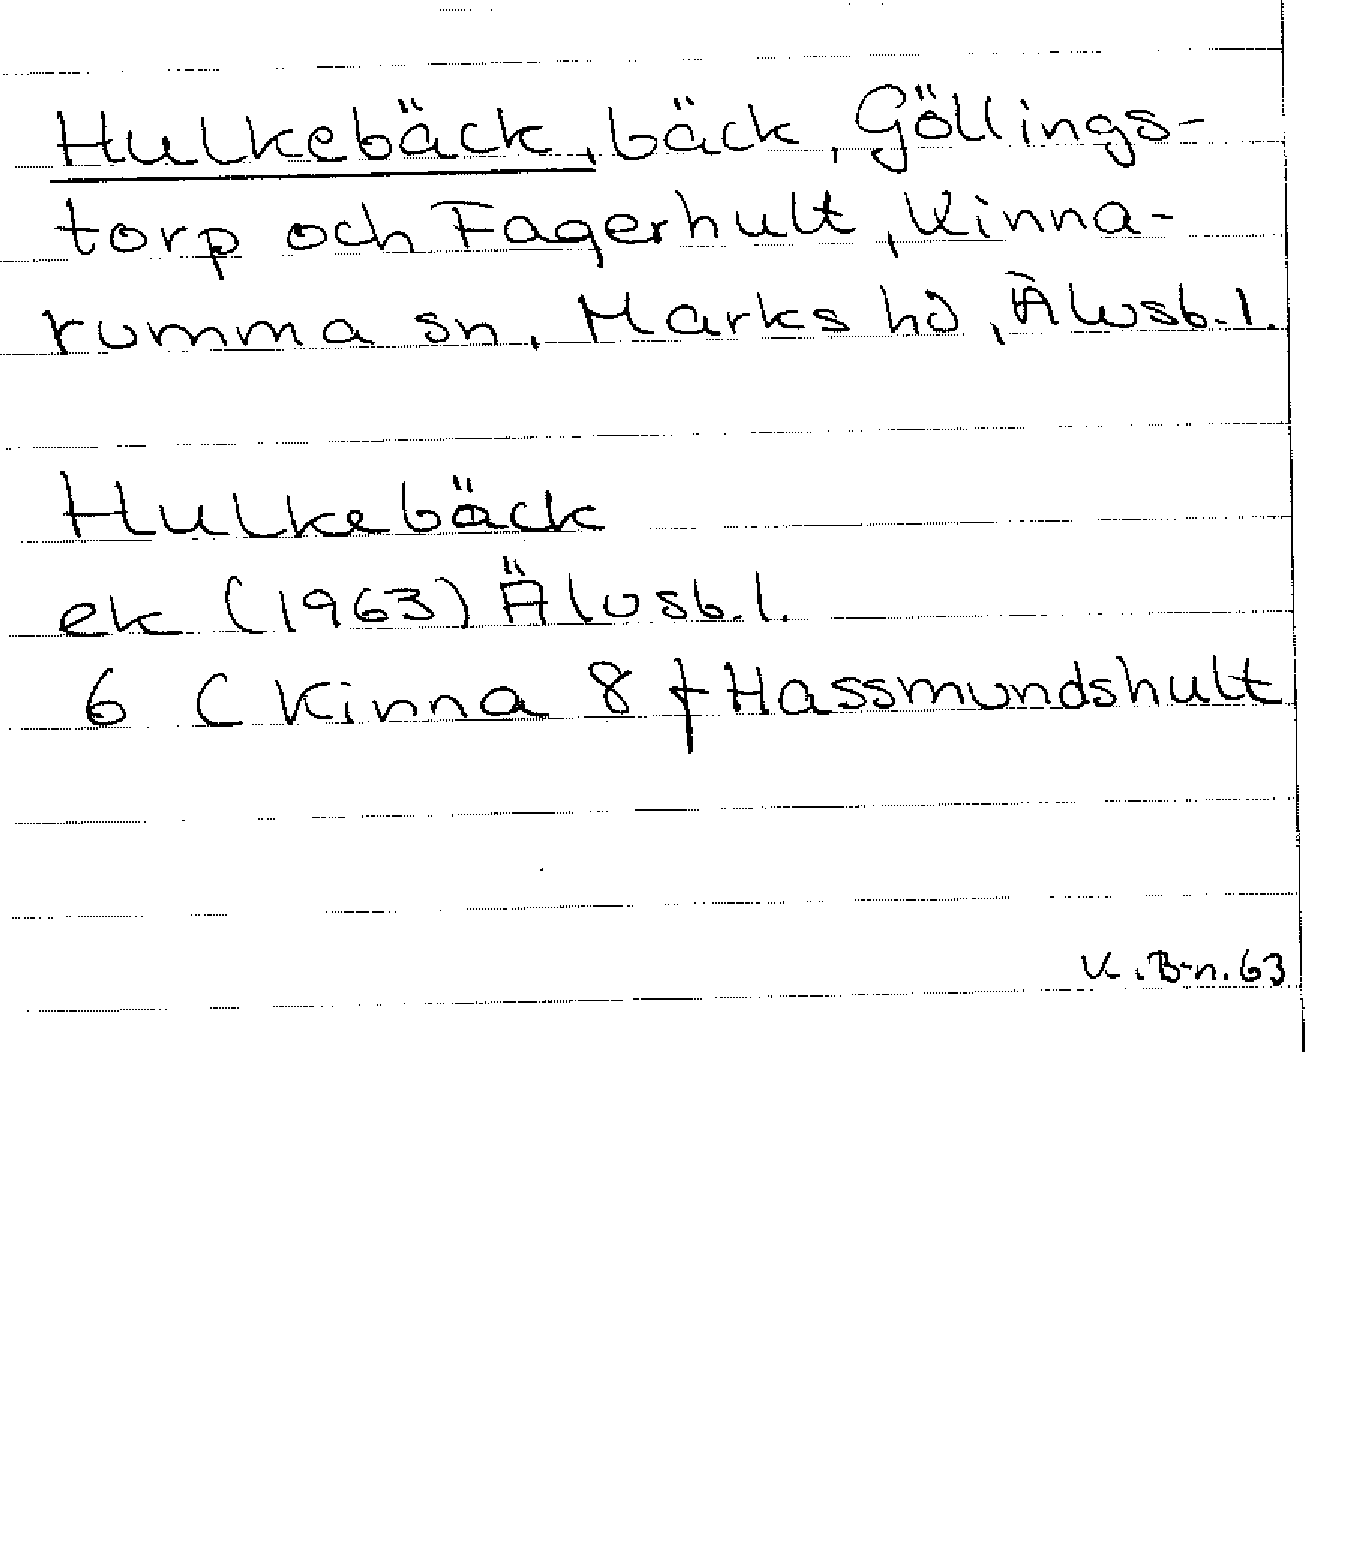 Hulkebäck, bäck, Göllings-
torp och Fagerhult, Kinna-
rumma sn, Marks hd, Älvsb. l.
Hulkebäck
ek (1963) Älvsb. l.
6 C Kinna 8 f Hassmundshult
K. B-n. 63